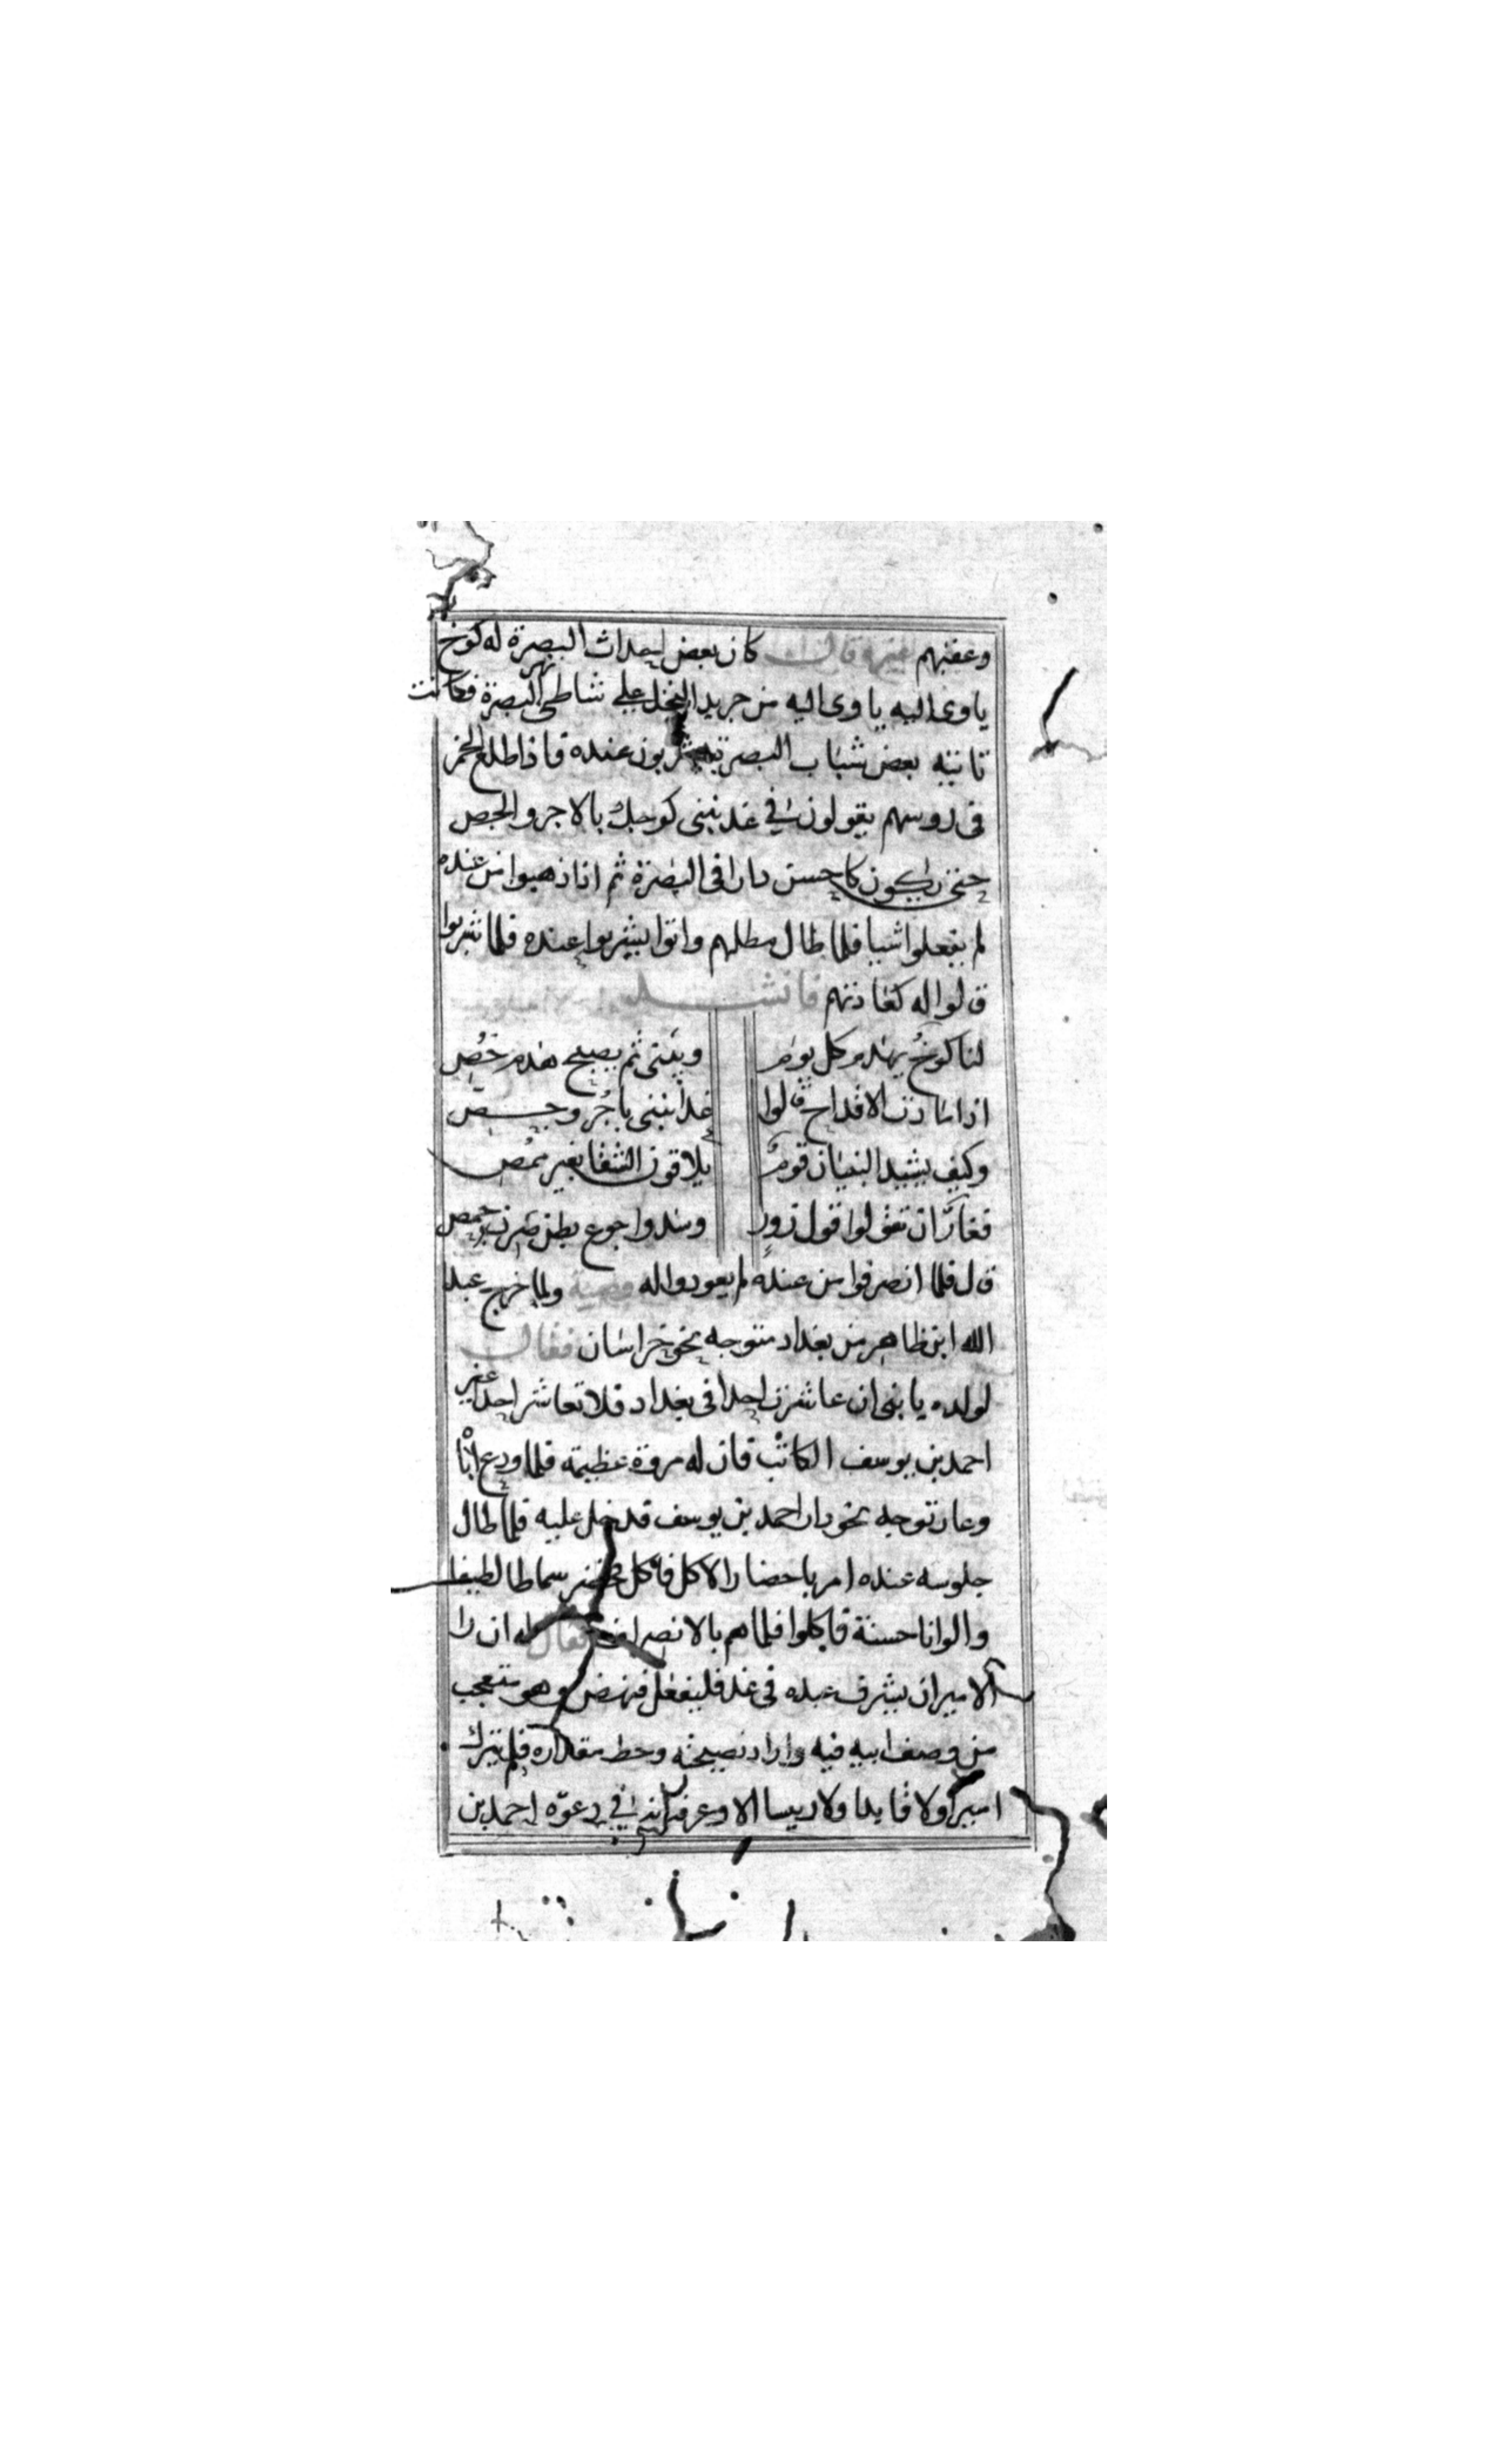 وعفتهم غيره قال كان بعض احداث البصرة له كوخ
ياوى اليه ياوى اليه من جريد النخل على شاطى نهر البصرة فكانت
تاتيه بعض شباب البصرة يشربون عنده فاذا طلع الخمر
فى روسهم يقولون فى غد نبنى كوخك بالاجر والجص
حتى يكون كاحسن دارا فى البصرة ثم اذا ذهبوا من عنده
لم يفعلوا شيا فلما طال مطلهم واتوا يشربوا عنده فلما شربوا
قالوا له كعادتهم فانشد
لنا كوخ يهدم كل يوم ويبنى ثم يصبح هدم خص
اذا دارت الاقداح قالوا غدا نبنى باجر وجص
وكيف يشيد البنيان قوم يلاقون الشتا بغير قمص
فعار ان تقولوا قول زور وسدوا جوع بطن
قال فلما انصرفوا من عنده لم يعودوا له ولما خرج عبد
الله ابن طاهر من بغداد متوجه نحو خراسان فقال
لولده يا بنى ان عاشرت احدا فى بغداد فلا تعاشر احدا غير
احمد بن يوسف الكاتب فان له مروة عظيمة فلما ودع اباه
وعاد توجه نحو دار احمد بن يوسف فدخل عليه فلما طال
جلوسه عنده امر باحضار الاكل فاكل فحضر سماطا لطيفا
والوانا حسنة فاكلوا فلما هم بالانصراف فقال له ان را
الامير ان يشرف عبده فى غد فليفعل فنهض وهو متعجب
من وصف ابيه فيه واراد نصيحته وحط مقداره فلم يترك
اميرا ولا قايدا ولا ريسا الا وعرفه انه فى دعوه احمد بن